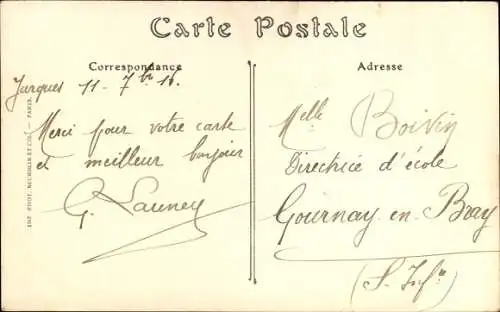 Carte Postale
Correspondance
Jurques 11 - 7bre 15.
Merci pour votre carte
et meilleur bonjour
G. Launey
Adresse
Melle Boivin
Directrice d'école
Gournay en Bray
(S. Infre)
IMP. PHOT. NEURDEIN ET CIE. — PARIS